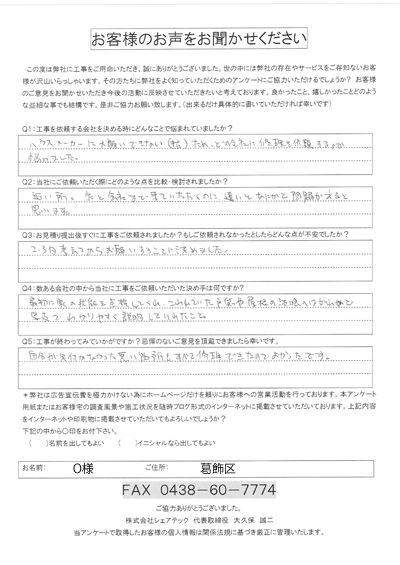 お客様のお声をお聞かせください
この度は弊社に工事をご用命いただき、誠にありがとうございました。世の中には弊社の存在やサービスをご存知ないお客
様が沢山いらっしゃいます。その方たちに弊社をよく知っていただくためのアンケートにご協力いただけるでしょうか? お客様
のご意見をお聞かせいただき今後の活動に反映させていただきたいと考えております。良かったこと、嬉しかったことどのよう
な些細な事でも結構です。是非ご協力お願い致します。(出来るだけ具体的に書いていただければ幸いです)
Q1:工事を依頼する会社を決める時にどんなことで悩まれていましたか?
ハウスメーカーにお願いできない(台)ため、どの会社に修理を依頼するか
悩みました。
Q2:当社にご依頼いただく際にどのような点を比較・検討されましたか?
近い所。
と思います。
Q3:お見積り提出後すぐに工事をご依頼されましたか?もしご依頼されなかったとしたらどんな点が不安でしたか?
2、3日考えてからお願いすることに決めました。
Q4:数ある会社の中から当社に工事をご依頼いただいた決め手は何ですか?
最初に家の状態を点検してくれ、こわれていた戸袋や屋根の塗膜のはがれなど
写真でわかりやすく説明してくれたこと。
Q5:工事が終わってみていかがですか?忌憚のないご意見を頂戴できましたら幸いです。
自分が気付かなかった悪い箇所もすべて修理できたのでよかったです。
*弊社は広告宣伝費を極力かけない為にホームページだけを頼りにお客様への営業活動を行っております。本アンケート
用紙またはお客様宅の調査風景や施工状況を随時ブログ形式のインターネットに掲載させていただいております。上記内容
をインターネットや印刷物に掲載させていただいてもよろしいでしょうか?
下記の中から○印をお付下さい。
( )名前を出してもよい ( )イニシャルなら出してもよい
お名前: O様 ご住所: 葛飾区
FAX 0438-60-7774
ご協力ありがとうございました。
株式会社シェアテック 代表取締役 大久保 誠二
当アンケートで取得したお客様の個人情報は関係法規に基づき厳正に管理いたします。